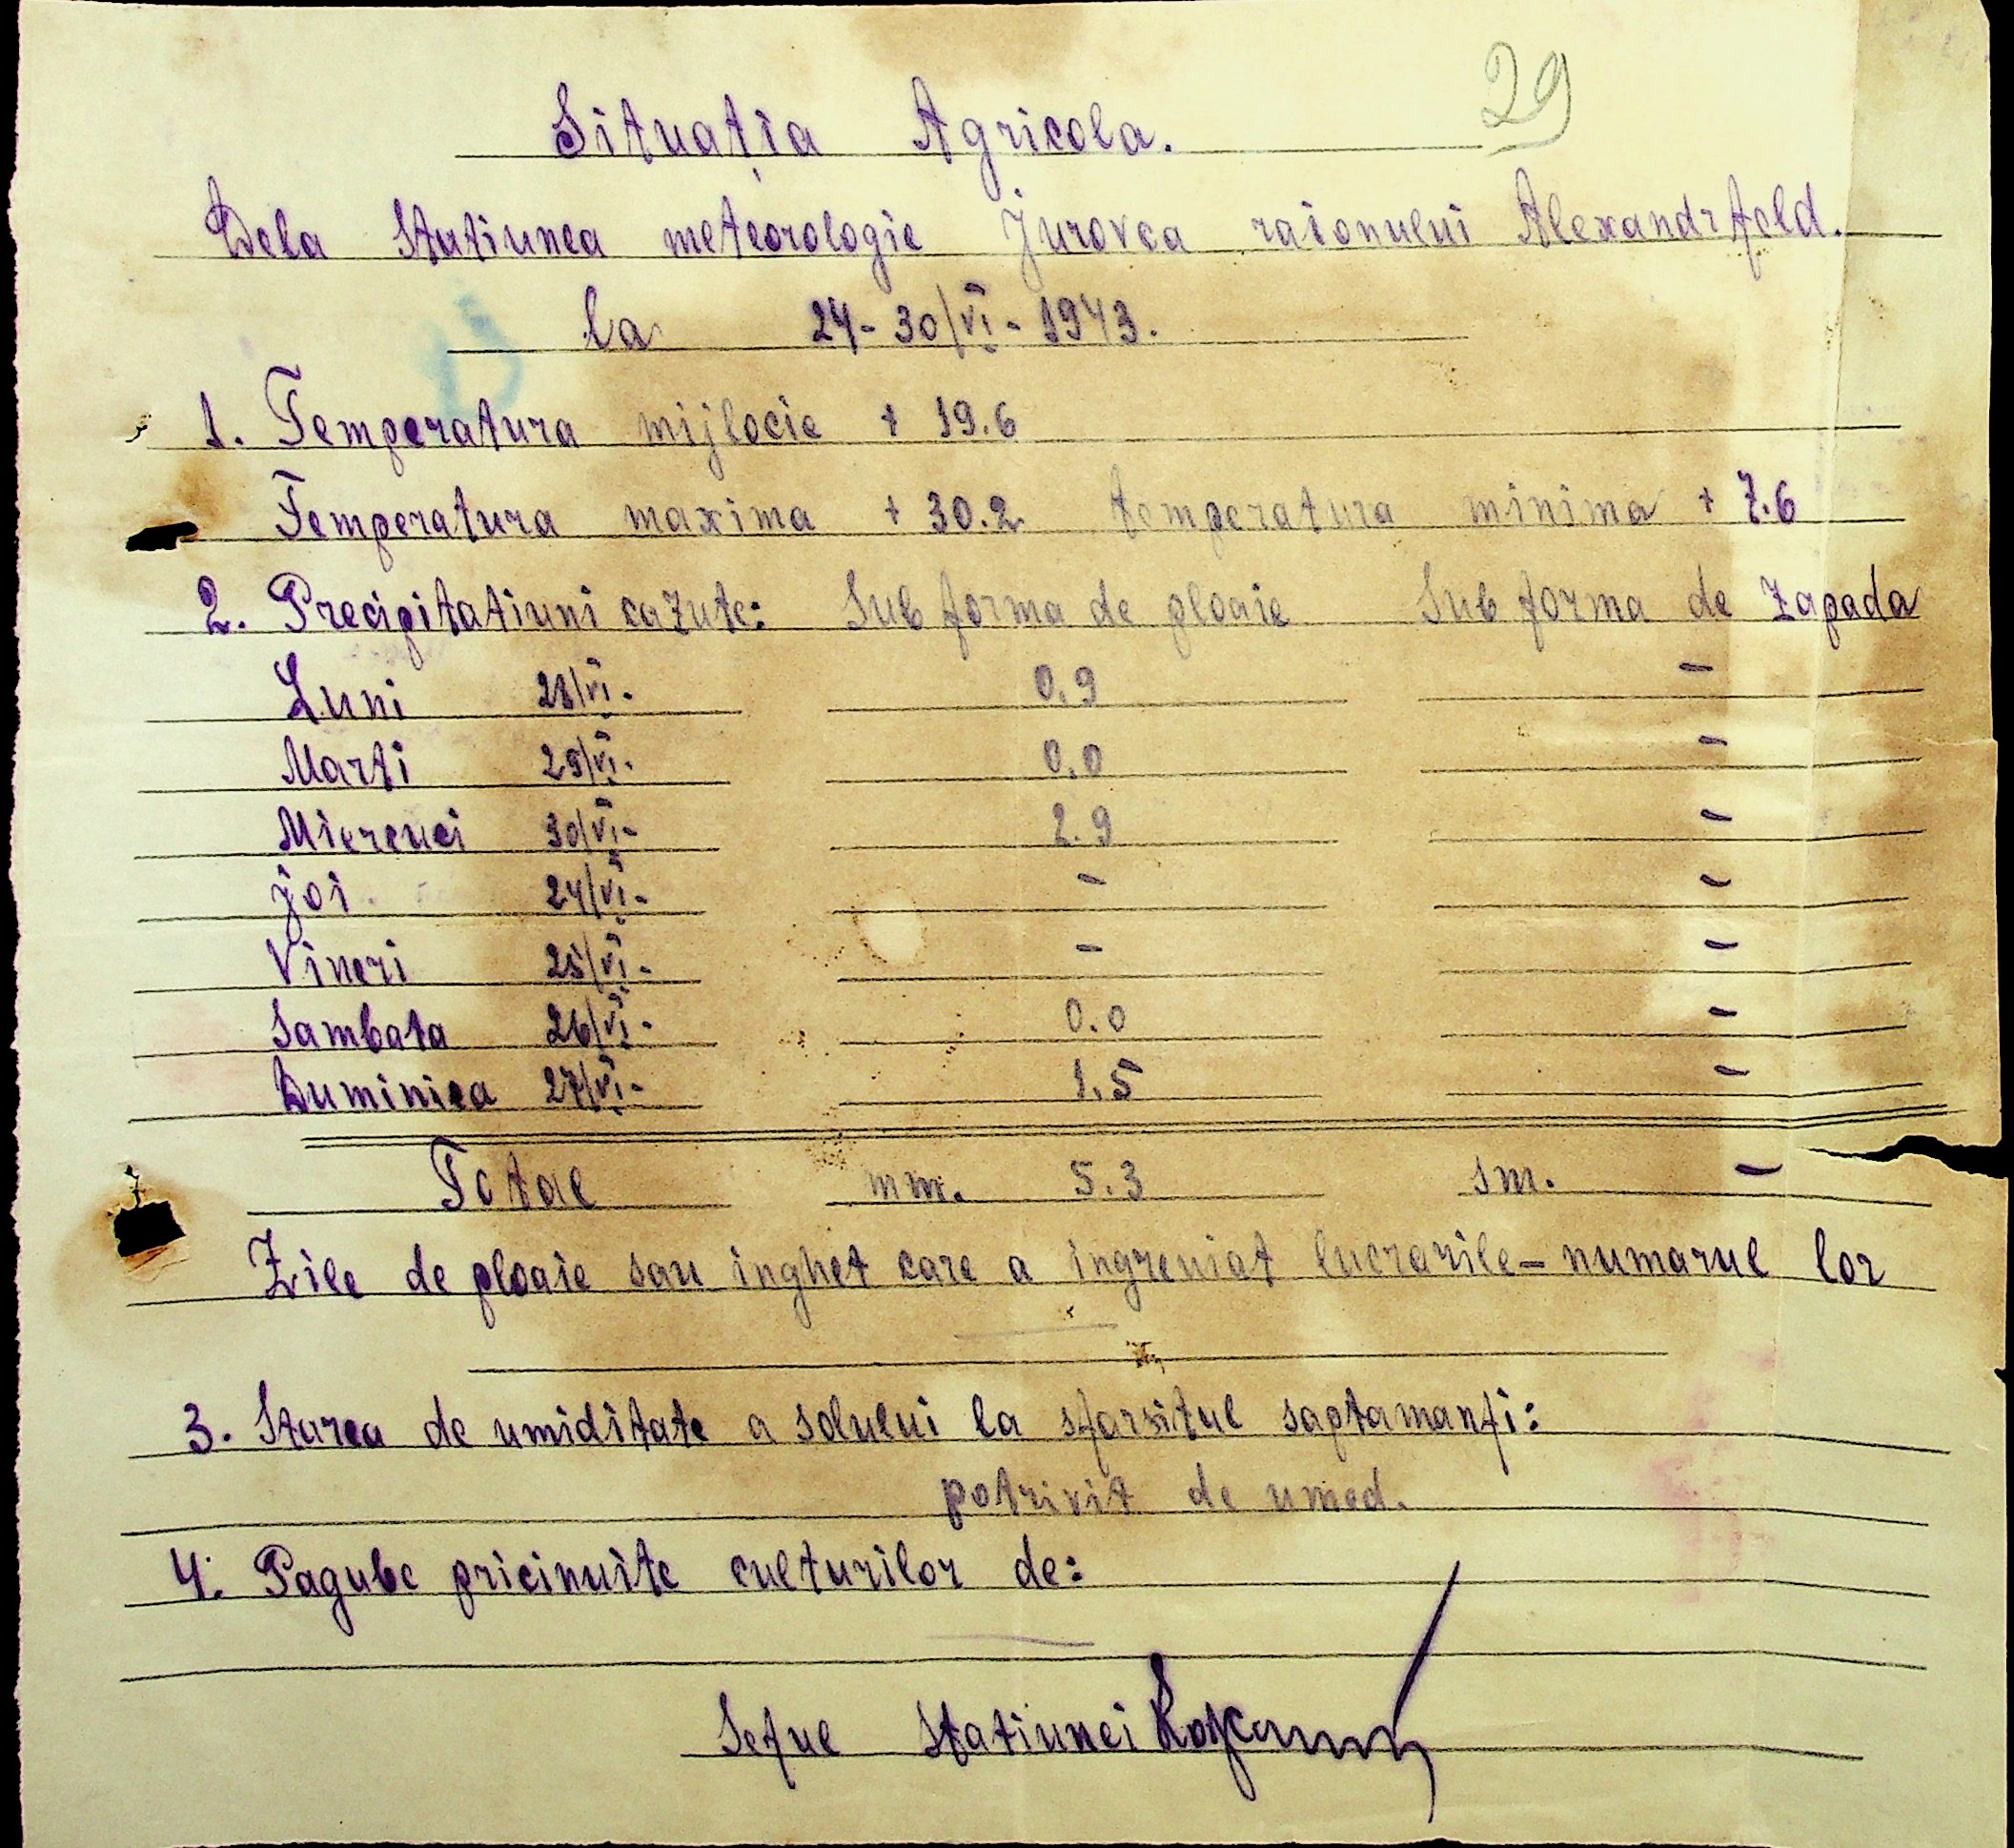 29
Situaţia Agricola.
Dela Statiunea meteorologie Jurovca raionului Alexandrfeld.
la 24-30/VI-1943.
1. Temperatura mijlocie + 19.6
Temperatura maxima + 30.2 temperatura minima + 7.6
2. Precipitatiuni cazute: Sub forma de ploaie Sub forma de zapada
Luni 28/VI- 0.9 -
Marti 29/VI- 0.0 -
Miercuei 30/VI- 2.9 -
Joi 24/VI- - -
Vineri 25/VI- - -
Sambata 26/VI- 0.0 -
Duminica 27/VI- 1.5 -
Total mm. 5.3 sm. -
Zile de ploaie sau inghet care a ingreniat lucrarile - numarul lor
3. Starea de umiditate a solului la sfarsitul saptamanfi:
potrivit de umed.
4. Pagube pricinuite culturilor de:
Seful Statiunei